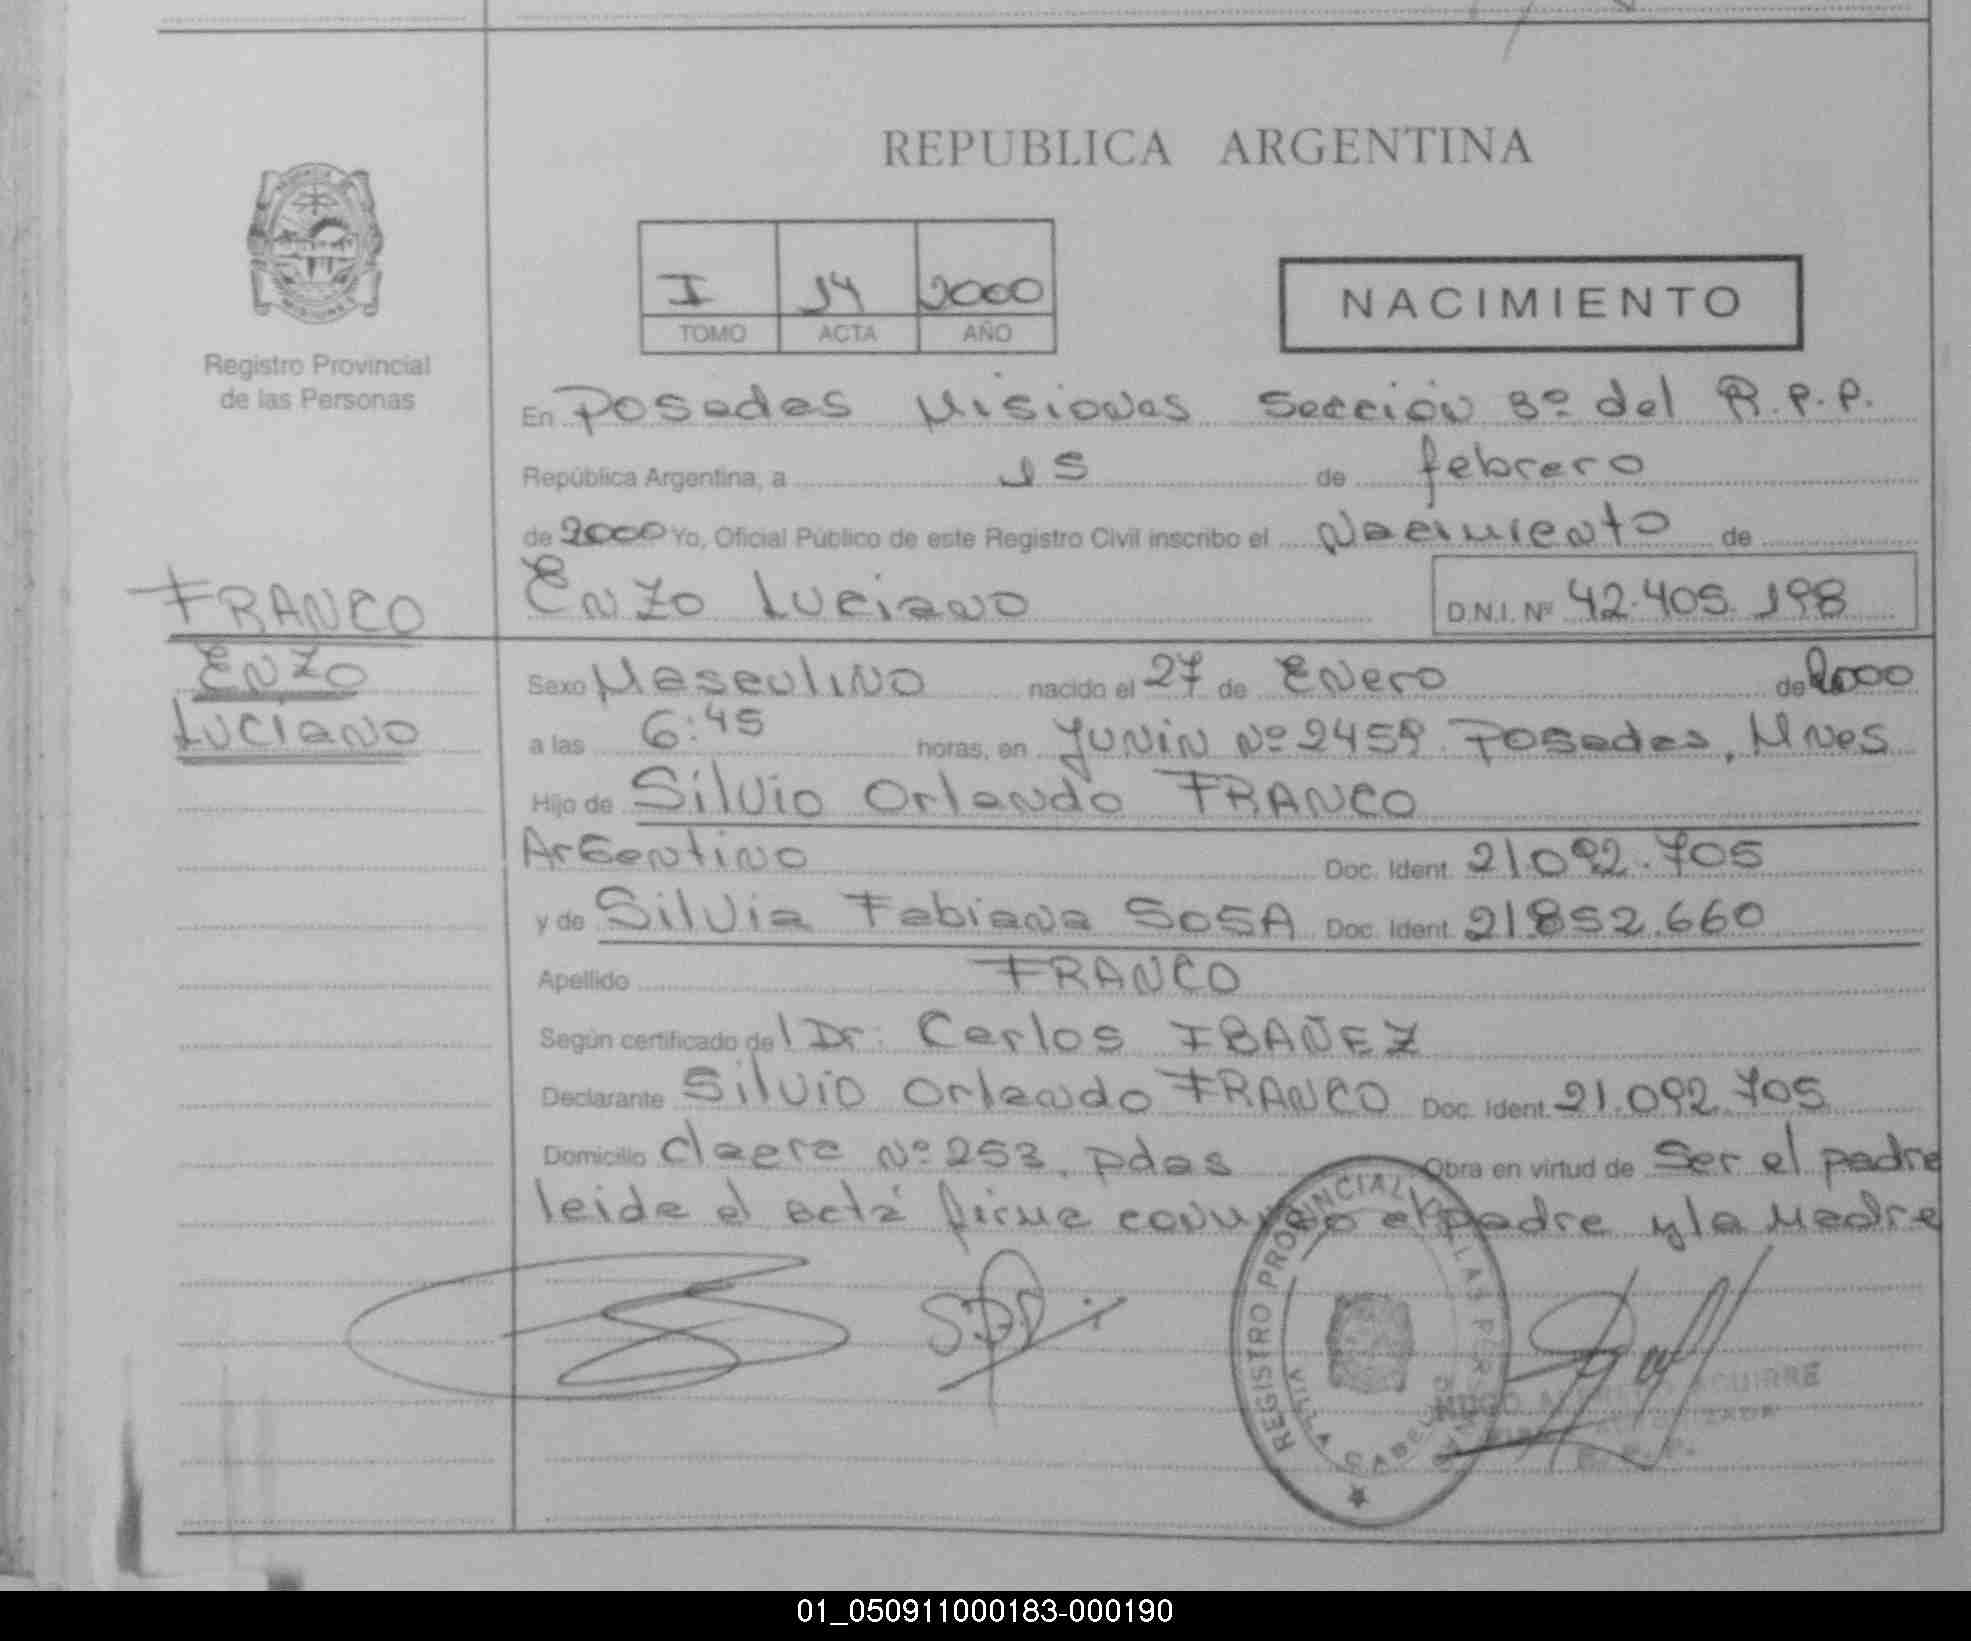 REPUBLICA ARGENTINA
I 14 2000
TOMO ACTA AÑO
NACIMIENTO
Registro Provincial
de las Personas
En Posadas Misiones Sección 3º del R.P.P.
República Argentina, a 15 de febrero
de 2000 Yo, Oficial Público de este Registro Civil inscribo el Nacimiento de
Enzo Luciano D.N.I. Nº 42.405.198
FRANCO
ENZO
Luciano
Sexo Masculino nacido el 27 de Enero de 2000
a las 6:45 horas, en Junin Nº 2459 Posadas, Mnes
Hijo de Silvio Orlando FRANCO
Argentino Doc. Ident. 21.092.705
y de Silvia Fabiana SOSA Doc. Ident. 21.852.660
Apellido FRANCO
Según certificado del Dr. Carlos IBAÑEZ
Declarante Silvio Orlando FRANCO Doc. Ident. 21.092.705
Domicilio Nº 253. Pdas Obra en virtud de Ser el padre
leida el acta firma conmigo el padre y la Madre
REGISTRO PROVINCIAL DE LAS PERSONAS
VILLA CABELLO
HUGO ALFREDO AGUIRRE
AUTORIZADA
R.P.P.
01_050911000183-000190